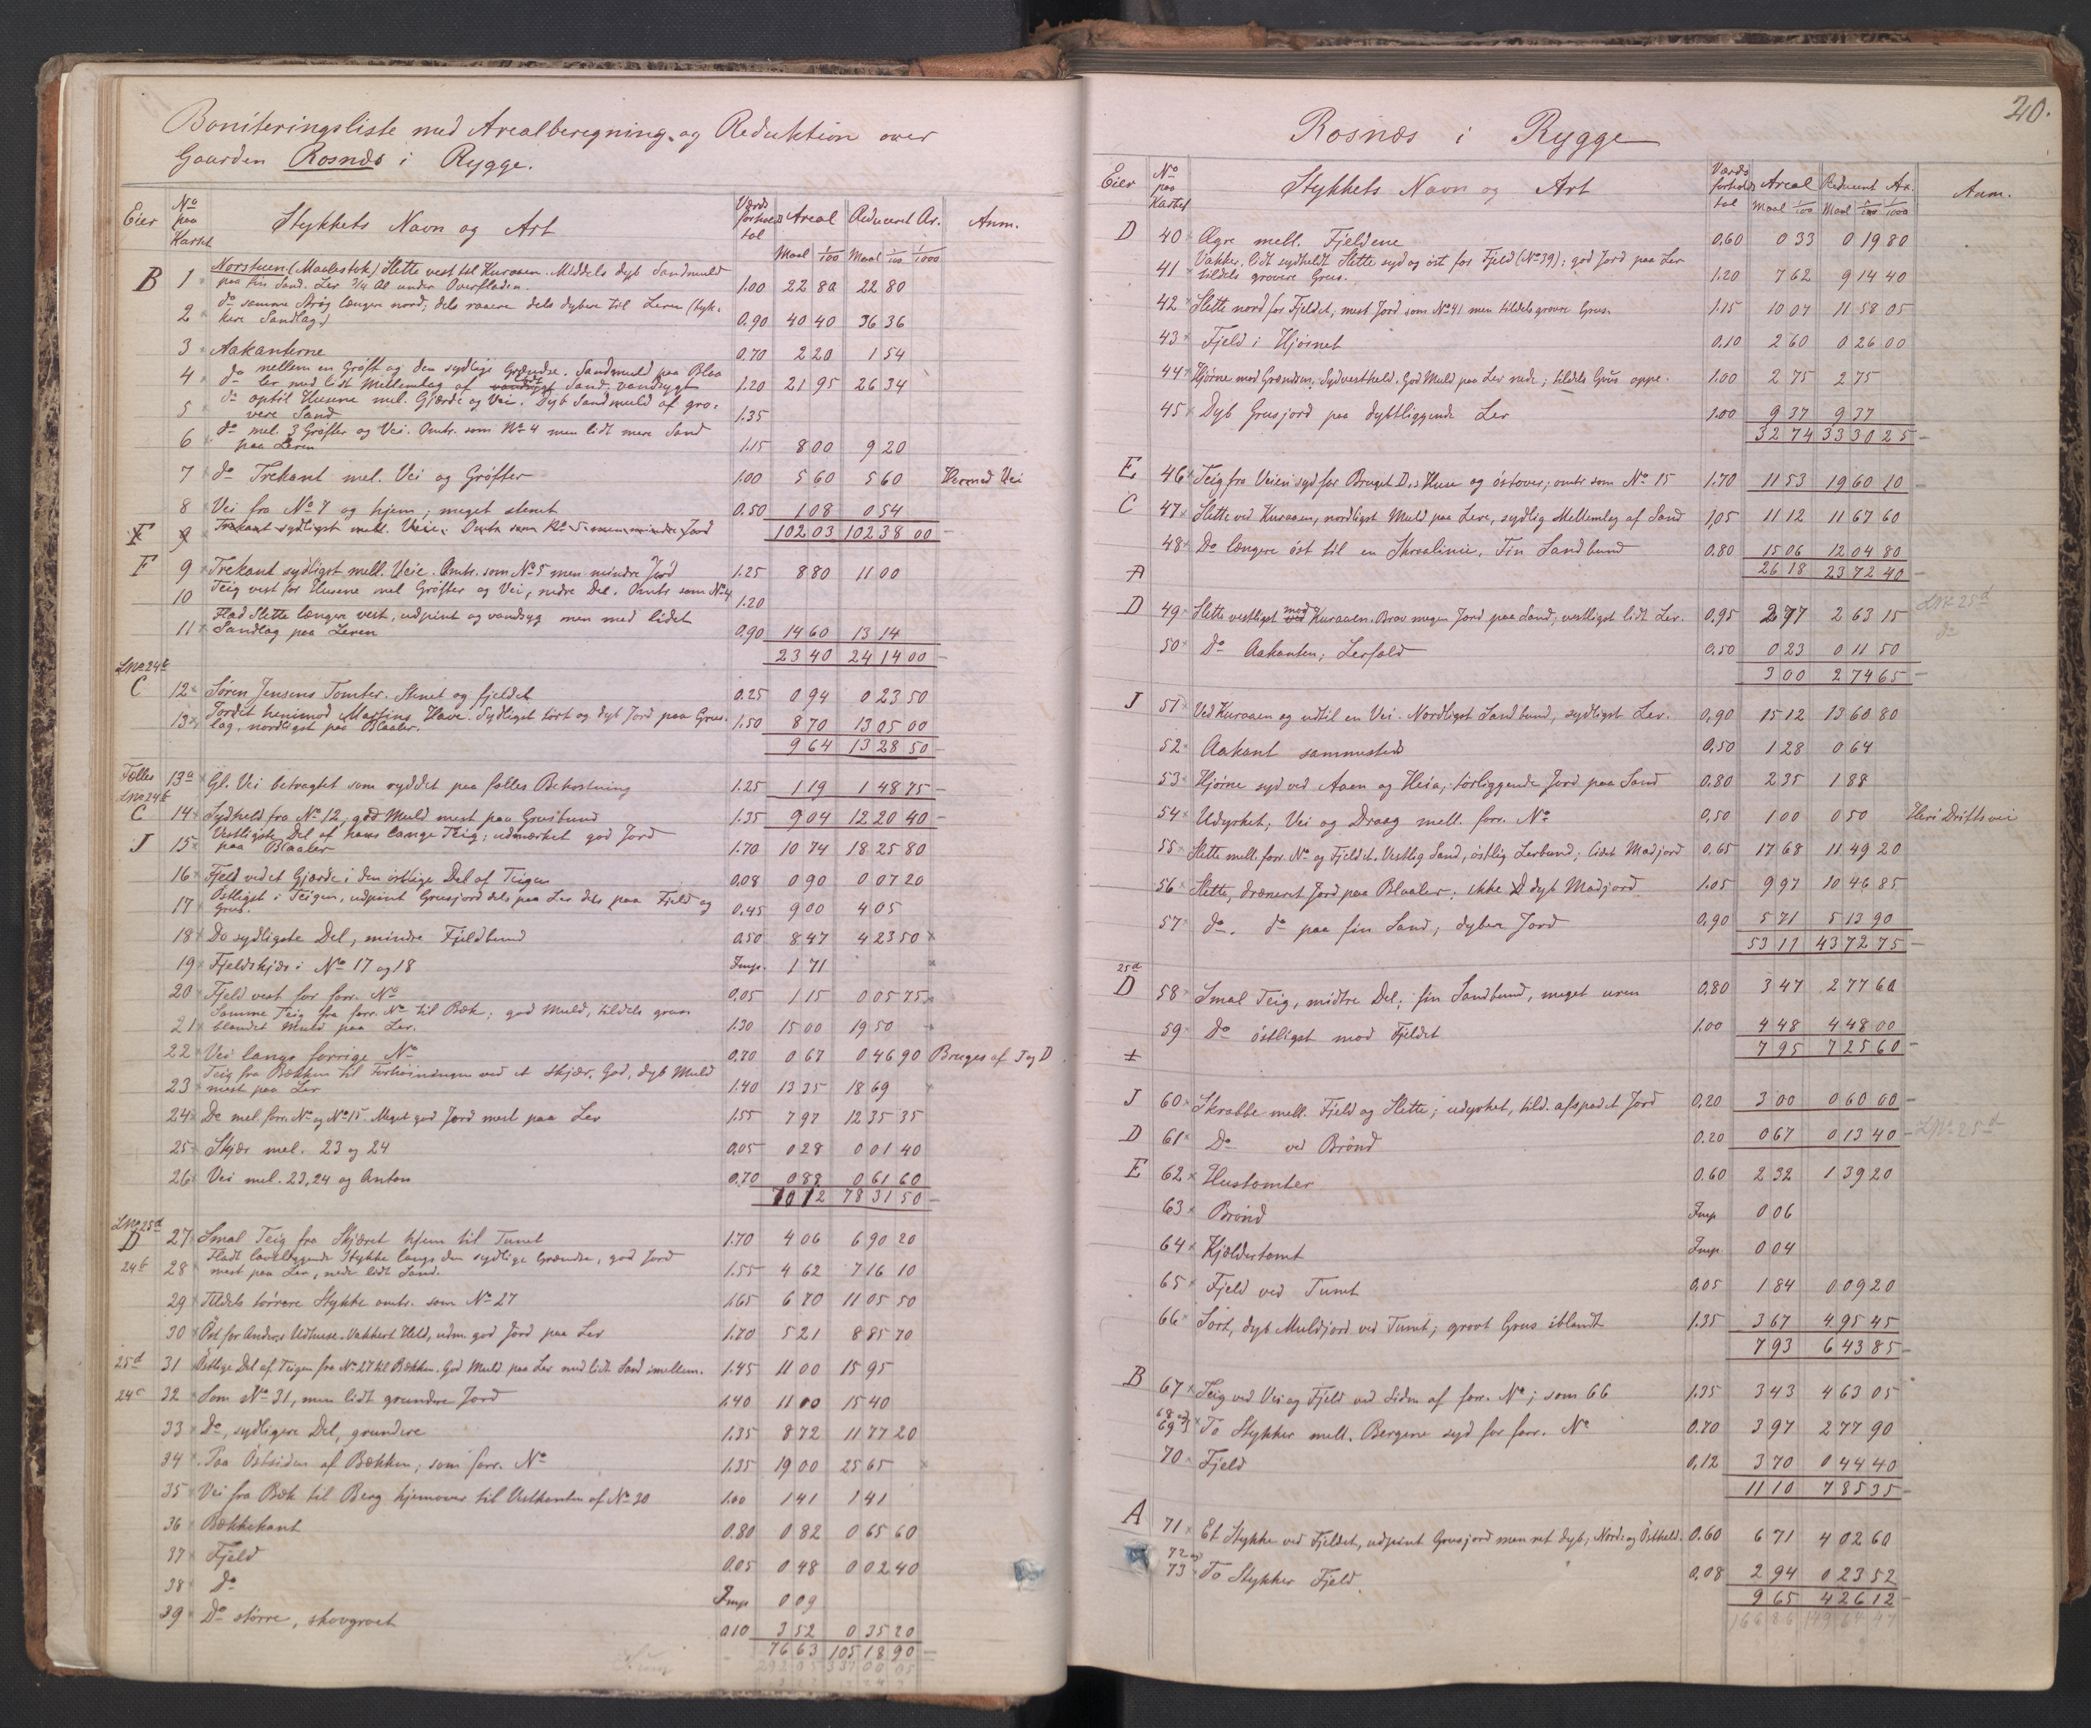 Boniteringsliste med Arealberegning og Reduktion over
Gaarden Rosnæs i Rygge.
Eier No paa Kartet Stykkets Navn og Art Værdi forholds tal Areal Reduceret Ar. Anm.
Maal 1/100 Maal 1/100 1/1000
B 1 Norsteen (Maalestok) Slette vest til Kuraaen. Middels dyb Sandmuld
paa fin Sand. Ler 3/4 Al under Overfladen. 1.00 22 80 22 80
2 do samme Arög længer nord; dels raaere dels dybere til Leren (tyk-
kere Sandlag) 0.90 40 40 36 36
3 Aakanterne 0.70 2 20 1 54
4 do mellem en Gröft og den sydlige Grændse. Sandmuld paa Blaa
ler med lidt Mellemlag af Sand, vandsygt 1.20 21 95 26 34
5 do optil Husene mel. Gjærde og Vei. Dyb Sandmuld af gro-
vere Sand 1.35
6 do mel. 3 Gröfter og Vei. Omtr. som No 4 men lidt mere Sand
paa Leren 1.15 8 00 9 20
7 do Trekant mel. Vei og Gröfter 1.00 5 60 5 60 Hermed Vei
8 Vei fra No 7 og hjem; meget stenet 0.50 1 08 0 54
F 9 Trekant sydligst mell. Veie. Omtr. som No 5 men mindre Jord 102 03 102 38 00
F 9 Trekant sydligst mell. Veie. Omtr. som No 5 men mindre Jord 1.25 8 80 11 00
10 Teig vest for Husene mel Gröfter og Vei, nedre Del. Omtr som No 4 1.20
11 Flad Slette længer vest, udpint og vandsyg men med lidet
Sandlag paa Leren 0.90 14 60 13 14
23 40 24 14 00
LNo 24b
C 12 Søren Jensens Tomter. Stenet og fjeldet 0.25 0 94 0 23 50
13 Jordet henimod Martins Have. Sydligst tört og dyb Jord paa Grus-
lag, nordligst paa Blaaler. 1.50 8 70 13 05 00
9 64 13 28 50
Fælles 13a Gl. Vei betragtet som ryddet paa fælles Bekostning 1.25 1 19 1 48 75
LNo 24b
C 14 Sydheld fra No 12, god Muld mest paa Grusbund 1.35 9 04 12 20 40
J 15 Vestligste Del af hans lange Teig; udmærket god Jord
paa Blaaler 1.70 10 74 18 25 80
16 Fjeld vedet Gjærde i den östlige Del af Teigen 0.08 0 90 0 07 20
17 Östligst i Teigen, udpint Grusjord dels paa Ler dels paa Fjeld og
Grus. 0.45 9 00 4 05
18 Do sydligste Del, mindre Fjeldbund 0.50 8 47 4 23 50
19 Fjeldskjær i No 17 og 18 Imp. 1 71
20 Fjeld vest for forr. No 0.05 1 15 0 05 75
21 Samme Teig fra forr. No til Bæk; god Muld, tildels grus
blandet Muld paa Ler. 1.30 15 00 19 50
22 Vei langs forrige No 0.70 0 67 0 46 90 Bruges af J og D
23 Teig fra Bækken til Forhöiningen ved et Skjær. God, dyb Muld
mest paa Ler 1.40 13 35 18 69
24 Do mel. forr. No og No 15. Meget god Jord mest paa Ler 1.55 7 97 12 35 35
25 Skjær mel. 23 og 24 0.05 0 28 0 01 40
26 Vei mel. 23, 24 og Anton 0.70 0 88 0 61 60
70 12 78 31 50
LNo 25d
D 27 Smal Teig fra Skjæret hjem til Tunet 1.70 4 06 6 90 20
24b 28 Fladt lavtliggende Stykke langs den sydlige Grændse, god Jord
mest paa Ler, nede lidt Sand. 1.55 4 62 7 16 10
29 Tildels törrere Stykke omtr. som No 27 1.65 6 70 11 05 50
30 Öst for Anders Udhuse. Vakkert Held, udm. god Jord paa Ler 1.70 5 21 8 85 70
25d 31 Östlige Del af Teigen fra No 27 til Bækken. God Muld paa Ler med lidt Sand imellem. 1.45 11 00 15 95
24c 32 Som No 31, men lidt grundere Jord 1.40 11 00 15 40
33 Do, sydligere Del, grundere 1.35 8 72 11 77 20
34 Paa Östsiden af Bækken; som forr. No 1.35 19 00 25 65
35 Vei fra Bæk til Berg hjemover til Vestkanten af No 30 1.00 1 41 1 41
36 Bækkekant 0.80 0 82 0 65 60
37 Fjeld 0.05 0 48 0 02 40
38 do Imp 0 09
39 Do större, skovgroet 0.10 3 52 0 35 20
76 63 105 18 90
Sum 292 05 337 00 05
20.
Rosnæs i Rygge
Eier No paa Kartet Stykkets Navn og Art Værdi forholds tal Areal Reducert Ar. Anm.
Maal 1/100 Maal 1/100 1/1000
D 40 Ægre mell. Fjeldene 0.60 0 33 0 19 80
41 Vakker, lidt sydheldt Slette syd og öst for Fjeld (No 39); god Jord paa Ler
tildels grovere Grus. 1.20 7 62 9 14 40
42 Slette nord for Fjeldet; mest Jord som No 41 men tildels grovere Grus. 1.15 10 07 11 58 05
43 Fjeld i Hjörnet 0.10 2 60 0 26 00
44 Hjörne mod Grændsen. Sydvestheld. God Muld paa Ler nede; tildels Grus oppe. 1.00 2 75 2 75
45 Dyb Grusjord paa dybtliggende Ler 1.00 9 37 9 37
32 74 33 30 25
E 46 Teig fra Veien syd for Bruget D,s Huse og östover; omtr som No 15 1.70 11 53 19 60 10
C 47 Slette ved Kuraaen, nordligst Muld paa Lere, sydlig Mellemlag af Sand 1,05 11 12 11 67 60
48 Do længere öst til en Skraalinie. Fin Sandbund 0.80 15 06 12 04 80
A 26 18 23 72 40
D 49 Slette vestligst mod Kuraaen. Brav megen Jord paa Sand; vestligst lidt Ler. 0,95 2 77 2 63 15 LNr 25d
50 Do Aakanten; Lerfald 0,50 0 23 0 11 50 do
3 00 2 74 65
J 51 Ved Kuraaen og udtil en Vei. Nordligst Sandbund, sydligst Ler. 0,90 15 12 13 60 80
52 Aakant sammesteds 0,50 1 28 0 64
53 Hjörne syd ved Aaen og Heia; törliggende Jord paa Sand 0.80 2 35 1 88
54 Udyrket; Vei og Draag mell. forr. No 0,50 1 00 0 50 Heri Driftsvei
55 Slette mell. forr. No og Fjeldet. Vestlig Sand, östlig Lerbund; lidet Madjord 0,65 17 68 11 49 20
56 Slette, dræneret Jord paa Blaaler; ikke dyb Madjord 1.05 9 97 10 46 85
57 do. do paa fin Sand; dybere Jord 0,90 5 71 5 13 90
53 11 43 72 75
25d
D 58 Smal Teig, midtre Del; fin Sandbund, meget uren 0,80 3 47 2 77 60
59 Do östligst mod Fjeldet 1.00 4 48 4 48 00
7 95 7 25 60
J 60 Skrabbe mell. Fjeld og Slette; udyrket, tild. afspadet Jord 0,20 3 00 0 60 00
D 61 Do ved Brönd 0.20 0 67 0 13 40 LNo 25d
E 62 Hustomter 0.60 2 32 1 39 20
63 Brönd Imp 0 06
64 Kjældertomt Imp 0 04
65 Fjeld ved Tunet 0,05 1 84 0 09 20
66 Tört, dyb Muldjord ved Tunet; grovt Grus iblandt 1.35 3 67 4 95 45
7 93 6 43 85
B 67 Teig ved Vei og Fjeld ved Siden af forr. No; som 66 1.35 3 43 4 63 05
68 og 69 To Stykker mell. Bergene syd for forr. No 0.70 3 97 2 77 90
70 Fjeld 0,12 3 70 0 44 40
11 10 7 85 35
A 71 Et Stykke ved Fjeldet, udpint Grusjord men ret dyb; Nord- og Östheld. 0.60 6 71 4 02 60
72 og
73 To Stykker Fjeld. 0,08 2 94 0 23 52
9 65 4 26 12
166 86 149 64 47